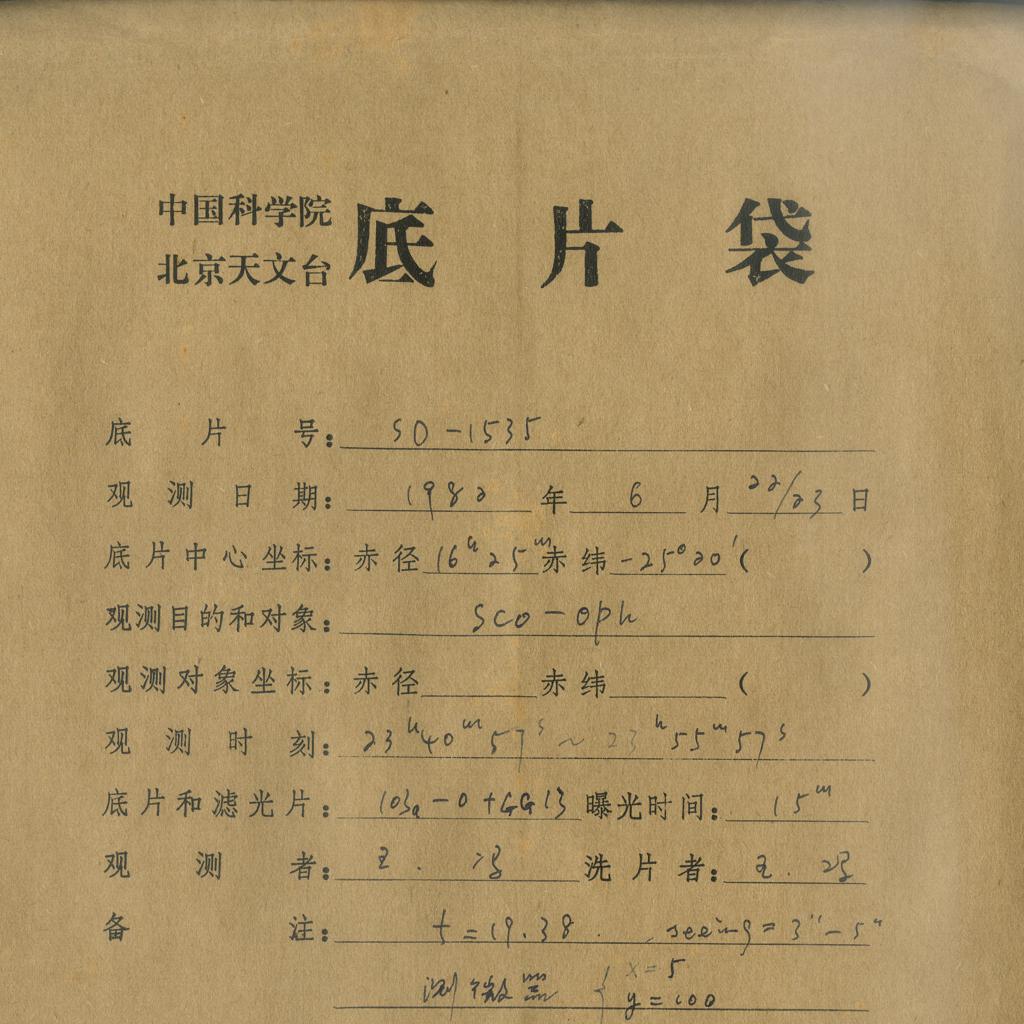 中国科学院
北京天文台
底片袋
底片号: SO-1535
观测日期: 1982年6月22/23日
底片中心坐标: 赤径16h25m赤纬-25°20′( )
观测目的和对象: Sco-oph
观测对象坐标: 赤径 赤纬 ( )
观测时刻: 23h40m57s~23h55m57s
底片和滤光片: 103a-O+GG13 曝光时间: 15m
观测者: 王. 冯 洗片者: 王. 冯
备注: t=19.38. seeing=3"-5"
测微器 { x=5
y=100